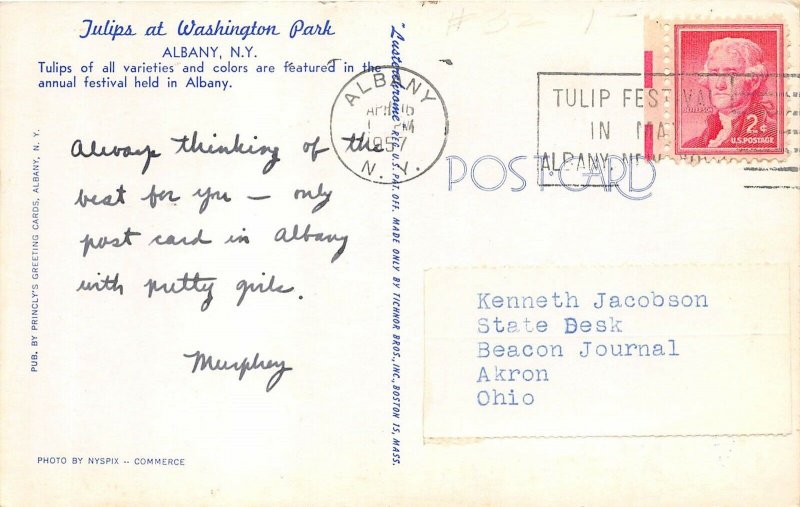 Tulips at Washington Park
ALBANY, N.Y.
Tulips of all varieties and colors are featured in the
annual festival held in Albany.
Always thinking of the
best for you — only
post card in Albany
with pretty girls.
Murphey
PUB. BY PRINCLY'S GREETING CARDS, ALBANY, N. Y.
PHOTO BY NYSPIX -- COMMERCE
"Lusterchrome" REG. U.S. PAT. OFF. MADE ONLY BY TICHNOR BROS., INC., BOSTON 15, MASS.
# 32 1-
ALBANY
APR 16
PM
1957
N. Y.
TULIP FESTIVAL
IN MAY
ALBANY, NEW
2¢
U.S. POSTAGE
POST CARD
Kenneth Jacobson
State Desk
Beacon Journal
Akron
Ohio